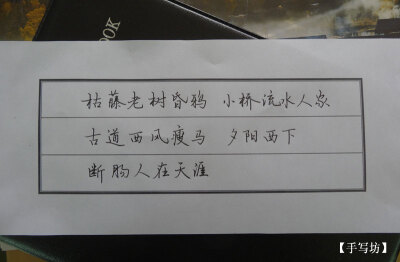 OOK
枯藤老树昏鸦 小桥流水人家
古道西风瘦马 夕阳西下
断肠人在天涯
【手写坊】